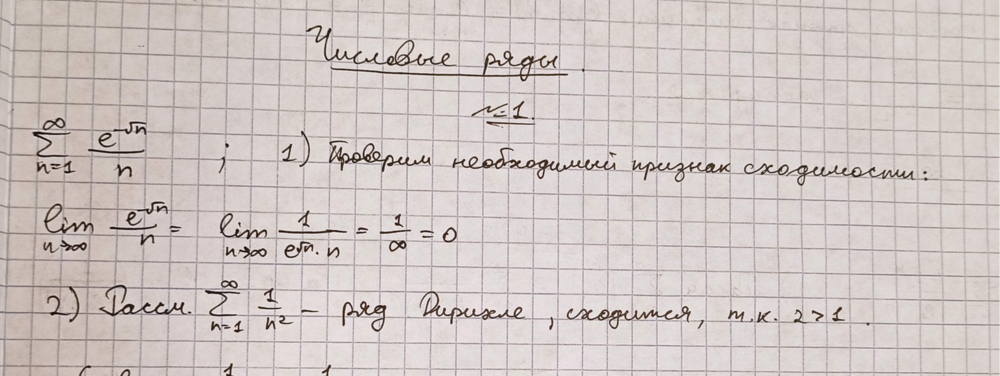 Числовые ряды.
№1.
∑_{n=1}^{∞} e^{-√n}/n ; 1) Проверим необходимый признак сходимости:
lim_{n→∞} e^{-√n}/n = lim_{n→∞} 1/(e^{√n}·n) = 1/∞ = 0
2) Рассм. ∑_{n=1}^{∞} 1/n² – ряд Дирихле, сходится, т.к. 2>1.